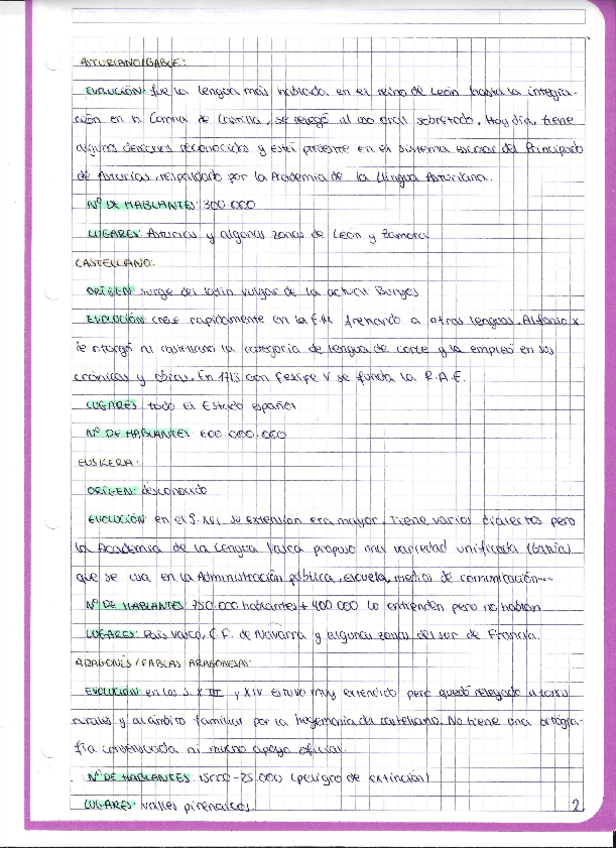 ASTURIANO/BABLE:
EVOLUCIÓN: fue la lengua más hablada en el reino de León hasta la integra-
ción en la Corona de Castilla, se relegó al uso oral sobretodo. Hoy día, tiene
algunos derechos reconocidos y está presente en el sistema escolar del Principado
de Asturias, respaldado por la Academia de la Llingua Asturiana.
Nº DE HABLANTES: 300.000
LUGARES: Asturias y algunas zonas de León y Zamora
CASTELLANO:
ORIGEN: surge del latín vulgar de la actual Burgos
EVOLUCIÓN: crece rapidamente en la E.M. frenando a otras lenguas. Alfonso X
le otorgó al castellano la categoría de lengua de corte y la empleó en sus
crónicas y obras. En 1713 con Felipe V se funda la R.A.E.
LUGARES: todo el Estado español
Nº DE HABLANTES: 600.000.000
EUSKERA:
ORIGEN: desconocido
EVOLUCIÓN: en el S. XVI, su extensión era mayor. Tiene varios dialectos pero
la Academia de la Lengua Vasca propuso una variedad unificada (batúa)
que se usa en la Administración pública, escuela, medios de comunicación...
Nº DE HABLANTES: 750.000 hablantes + 400 000 lo entienden pero no hablan
LUGARES: País Vasco, C.F. de Navarra y algunas zonas del sur de Francia.
ARAGONÉS / FABLAS ARAGONESAS:
EVOLUCIÓN: en los S. XIII y XIV estuvo muy extendido pero quedó relegado a zonas
rurales y al ámbito familiar por la hegemonía del castellano. No tiene una ortogra-
fía consensuada ni mucho apoyo oficial.
Nº DE HABLANTES: 15000-25.000 (peligro de extinción)
LUGARES: valles pirenaicos.
2